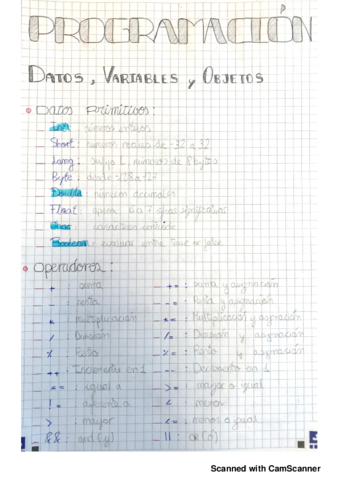 PROGRAMACIÓN
DATOS, VARIABLES y OBJETOS
Datos primitivos:
Int: números enteros
Short: números reales de -32 a 32
Long: sufijo L, números de 8 bytes
Byte: desde -128 a 127
Double: números decimales
Float: aprox. 6 a 7 cifras significativas
caracteres
Boolean: evaluar entre true o false
Operadores:
+ : suma
+= : suma y asignación
- : resta
-= : Resta y asignación
* : multiplicación
*= : Multiplicación y asignación
/ : División
/= : División y asignación
% : Resto
%= : Resto y asignación
++ : Incremento en 1
-- : Decremento en 1
== : igual a
>= : mayor o igual
!= : diferente a
< : menor
> : mayor
<= : menor o igual
&& : and (y)
|| : OR (ó)
Scanned with CamScanner